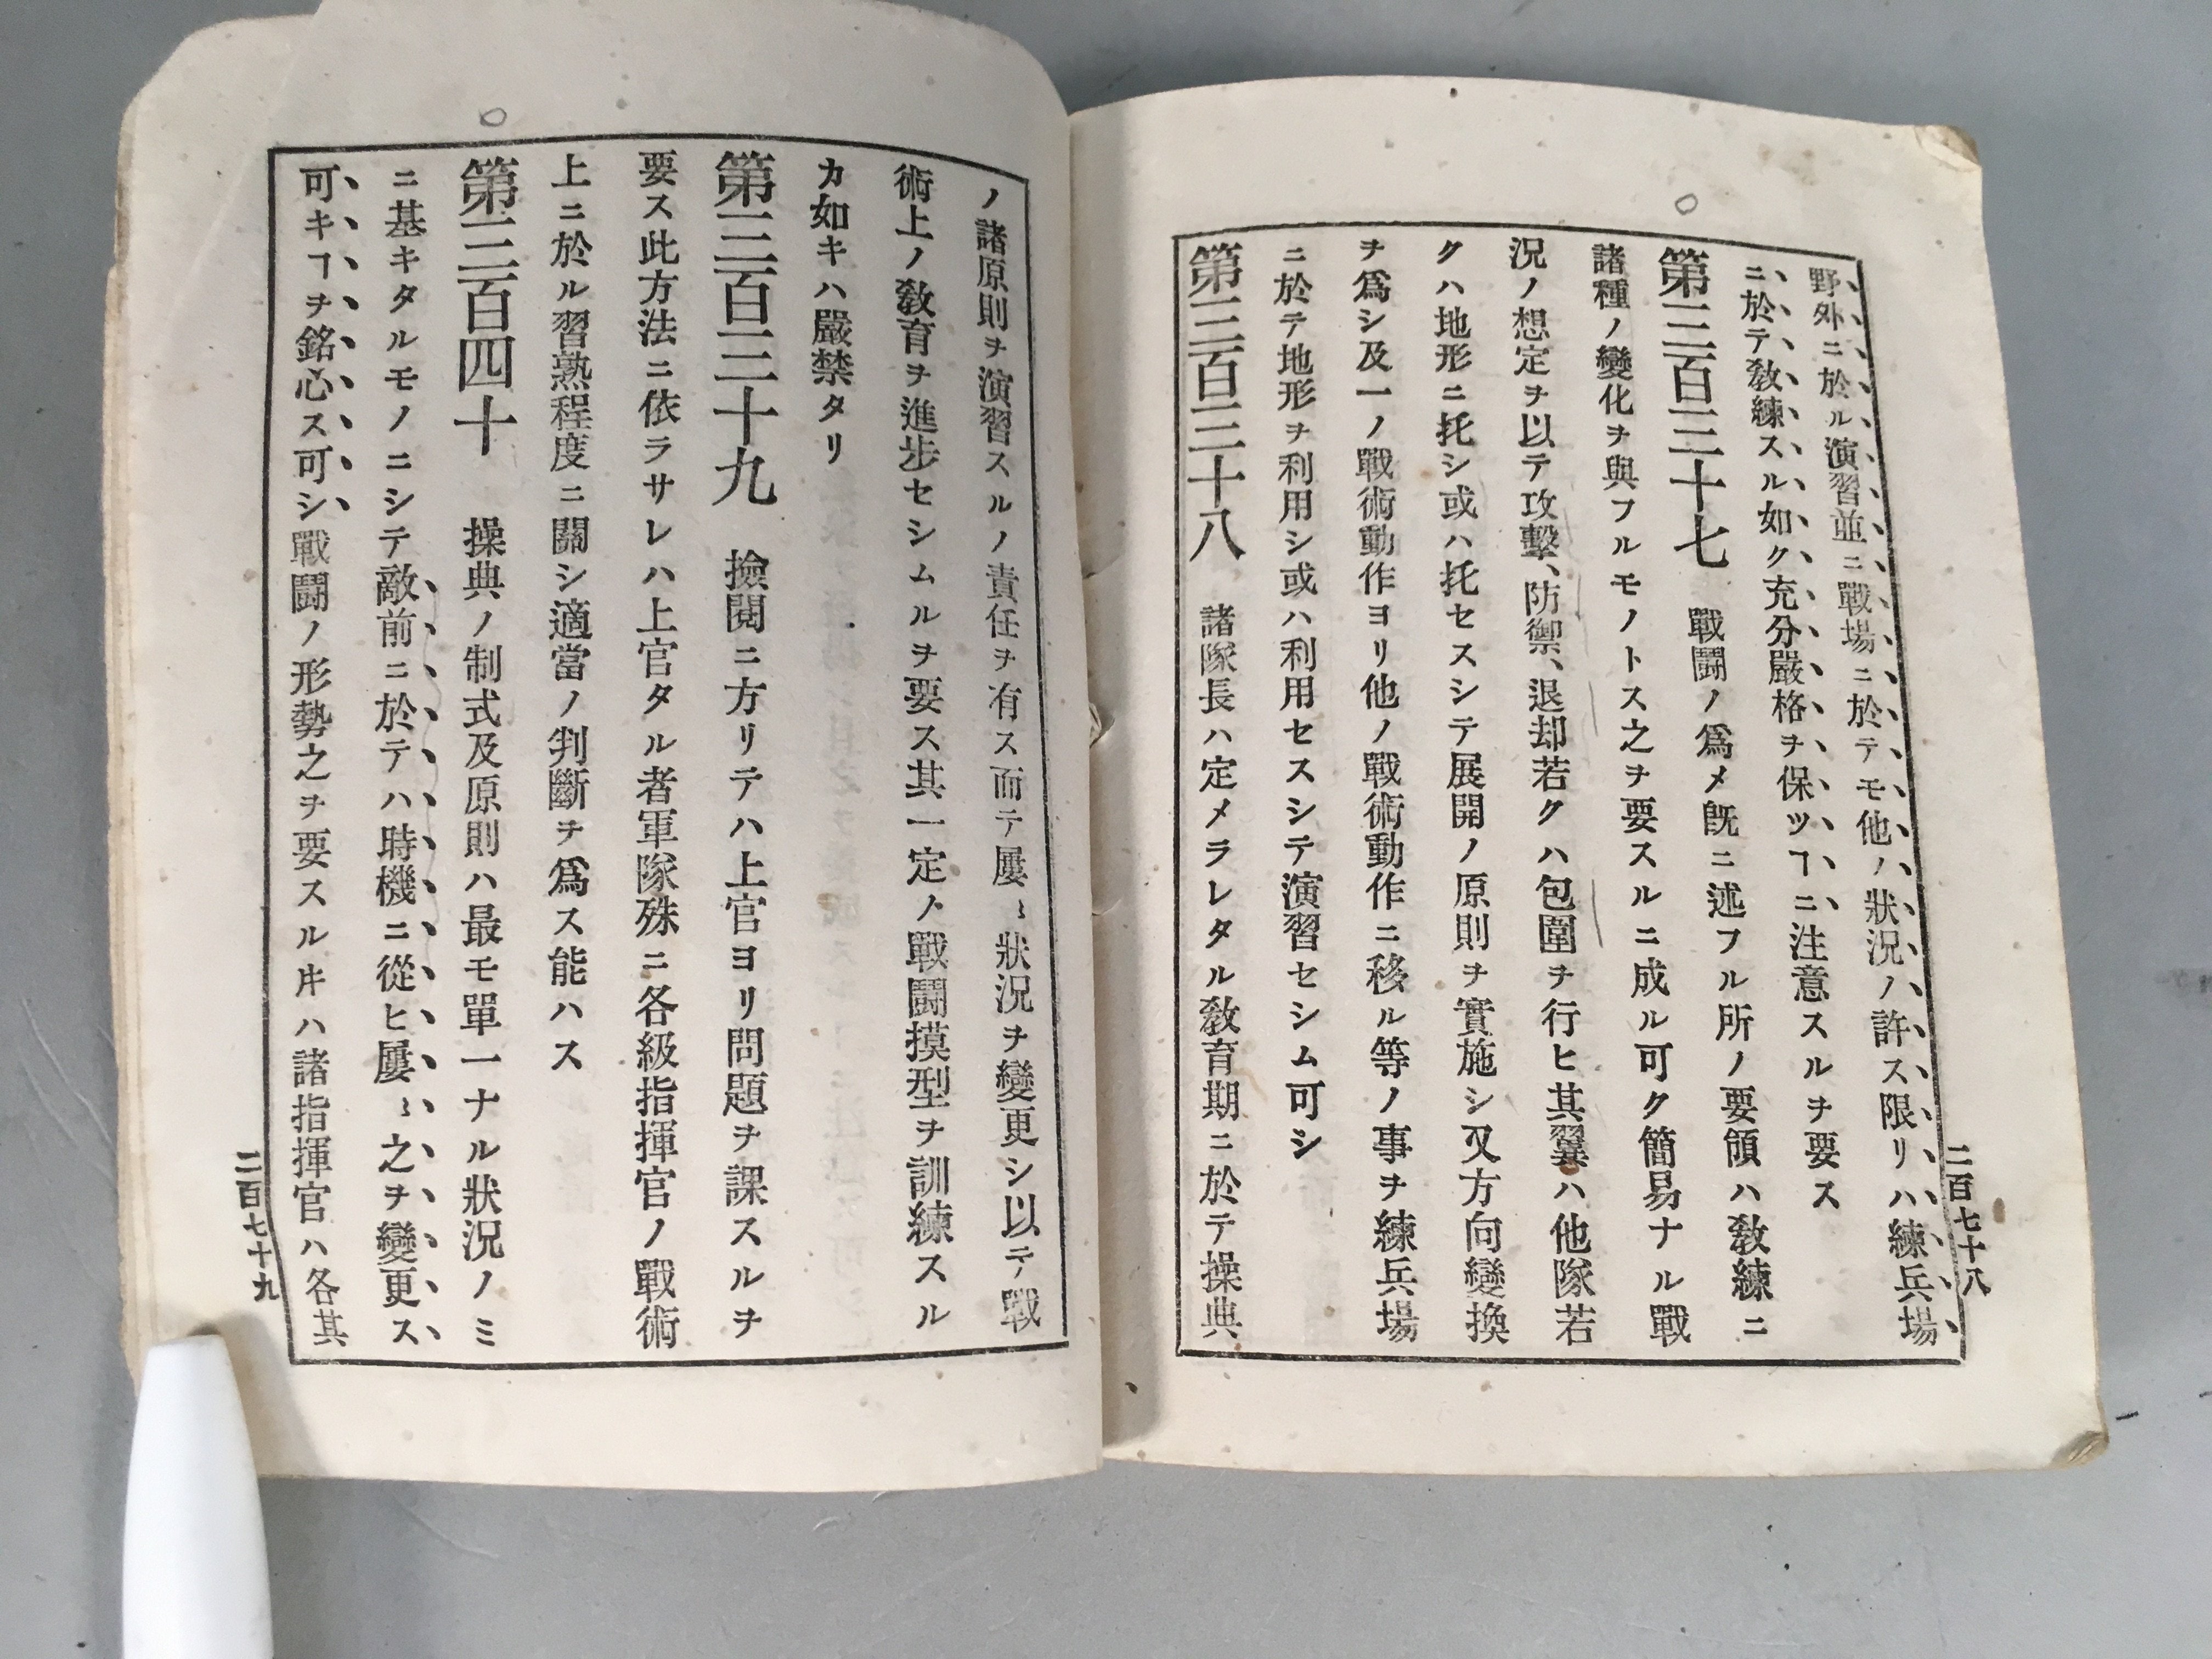 野外ニ於ル演習並ニ戰場ニ於テモ他ノ狀況ノ許ス限リハ練兵場
ニ於テ敎練スル如ク充分嚴格ヲ保ツヿニ注意スルヲ要ス
第三百三十七 戰鬪ノ爲メ旣ニ述フル所ノ要領ハ敎練ニ
諸種ノ變化ヲ與フルモノトス之ヲ要スルニ成ル可ク簡易ナル戰
況ノ想定ヲ以テ攻擊、防禦、退却若クハ包圍ヲ行ヒ其翼ハ他隊若
クハ地形ニ托シ或ハ托セスシテ展開ノ原則ヲ實施シ又方向變換
ヲ爲シ及一ノ戰術動作ヨリ他ノ戰術動作ニ移ル等ノ事ヲ練兵場
ニ於テ地形ヲ利用シ或ハ利用セスシテ演習セシム可シ
第三百三十八 諸隊長ハ定メラレタル敎育期ニ於テ操典
二百七十八
ノ諸原則ヲ演習スルノ責任ヲ有ス而テ屢〻狀況ヲ變更シ以テ戰
術上ノ敎育ヲ進步セシムルヲ要ス其一定ノ戰鬪摸型ヲ訓練スル
カ如キハ嚴禁タリ
第三百三十九 撿閱ニ方リテハ上官ヨリ問題ヲ課スルヲ
要ス此方法ニ依ラサレハ上官タル者軍隊殊ニ各級指揮官ノ戰術
上ニ於ル習熟程度ニ關シ適當ノ判斷ヲ爲ス能ハス
第三百四十 操典ノ制式及原則ハ最モ單一ナル狀況ノミ
ニ基キタルモノニシテ敵前ニ於テハ時機ニ從ヒ屢〻之ヲ變更ス
可キヿヲ銘心ス可シ戰鬪ノ形勢之ヲ要スル𪜈ハ諸指揮官ハ各其
二百七十九